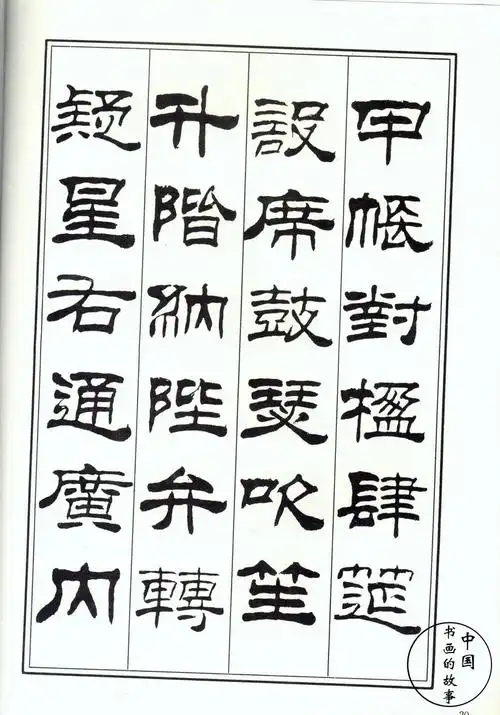 甲帳對楹肆筵
設席鼓瑟吹笙
升階納陛弁轉
疑星右通廣內
中国
书画的故事
20